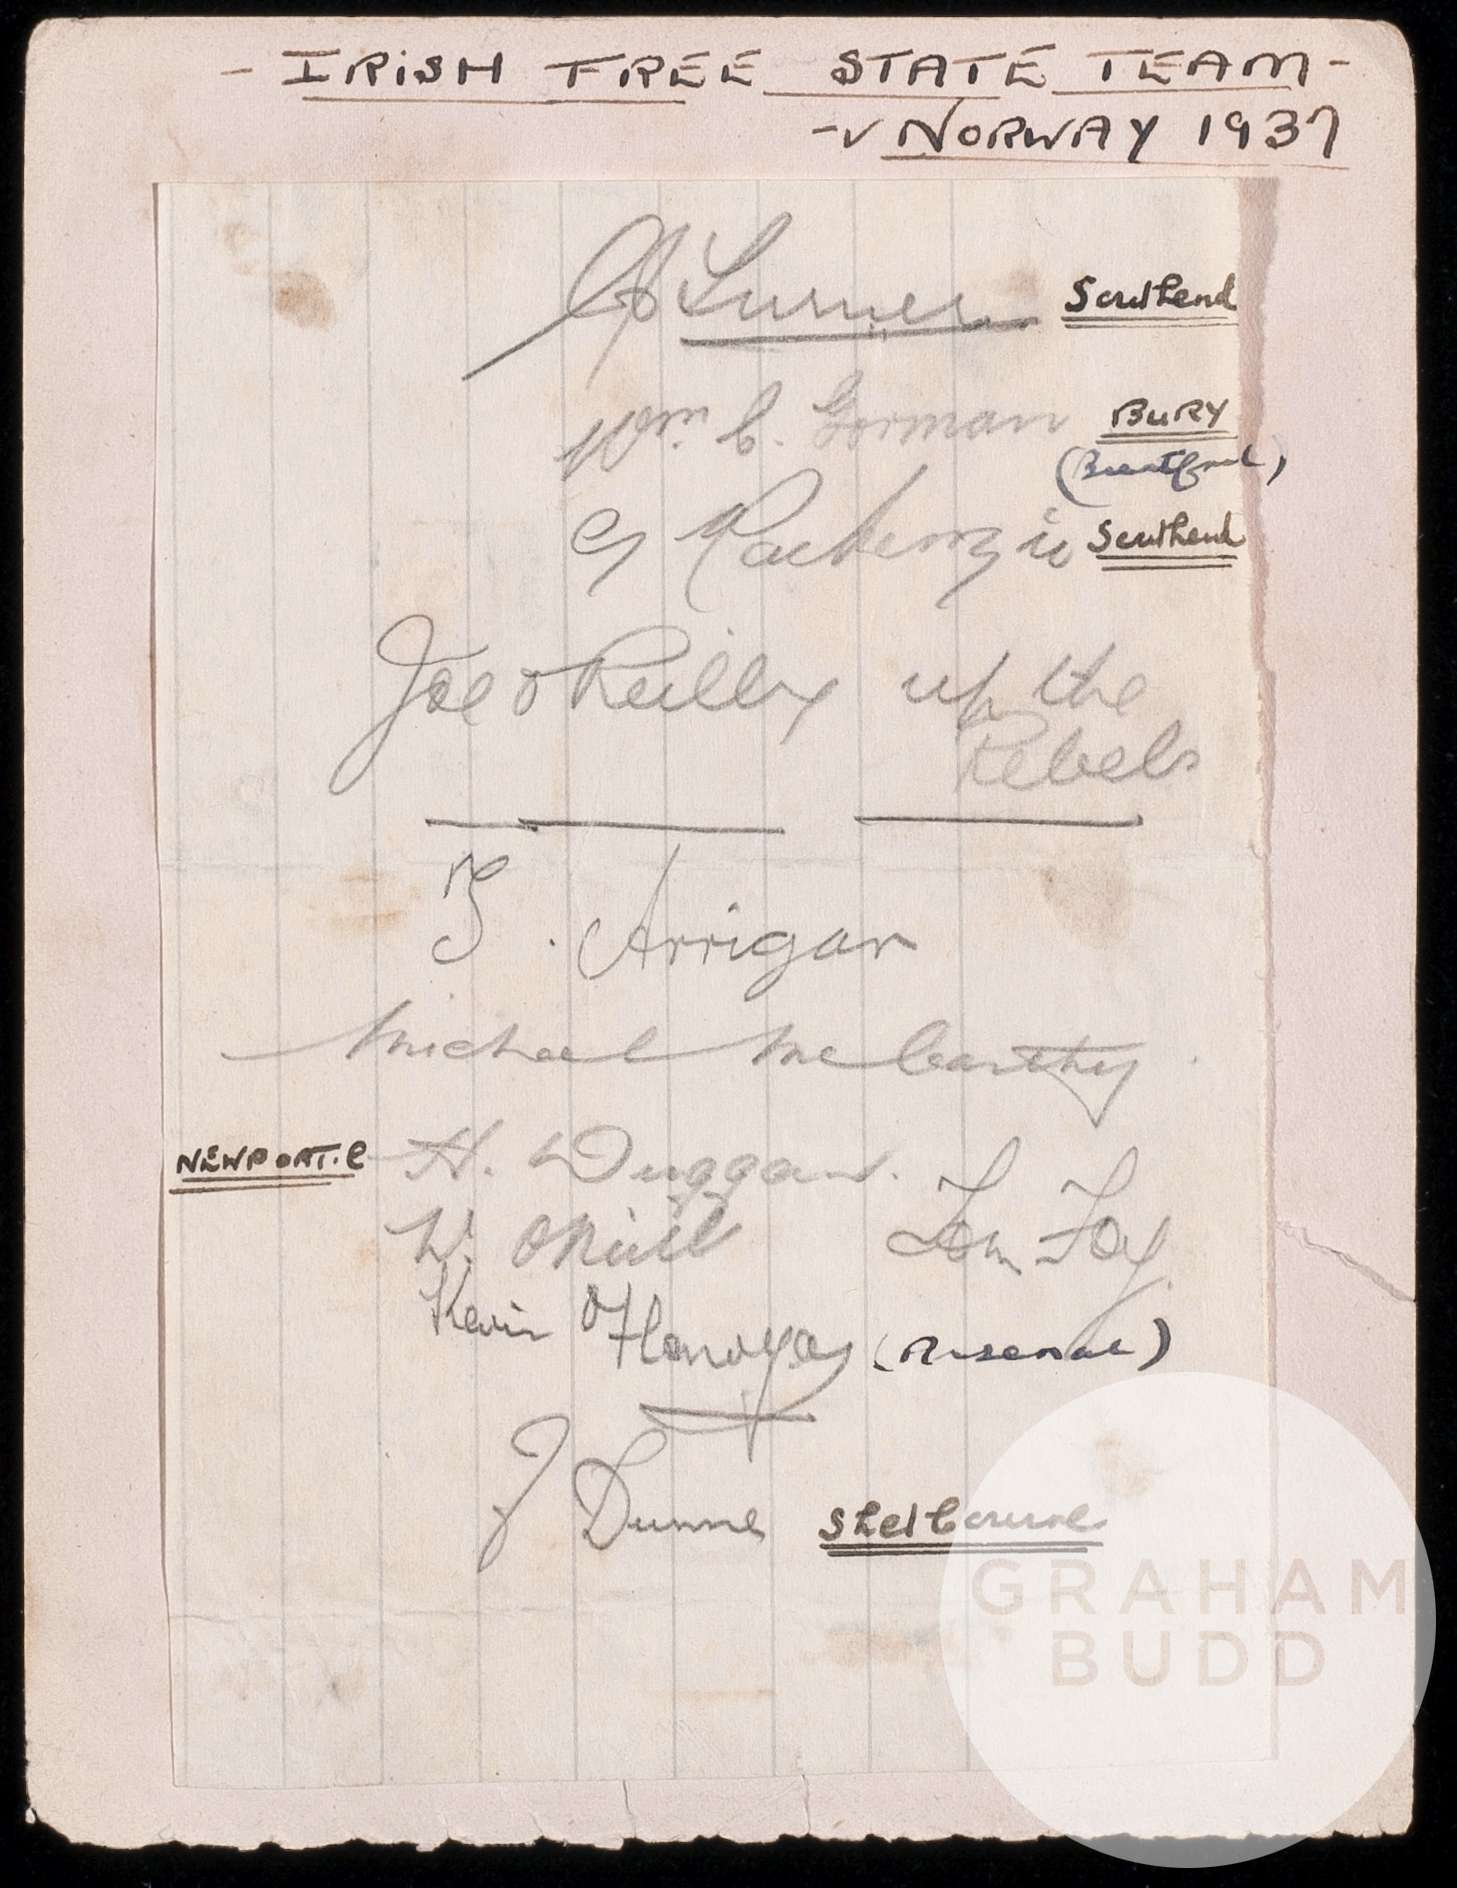 - IRISH FREE STATE TEAM -
- v NORWAY 1937
CJ Turner Southend
Wm. C. Gorman BURY
(Brentford)
G Mackenzie Southend
Joe O'Reilly up the
Rebels
T. Arrigan
Michael McCarthy.
NEWPORT. C H. Duggan.
W. O'Neill Tom Foy.
Kevin O'Flanagan (Arsenal)
J Dunne Shelbourne
GRAHAM
BUDD